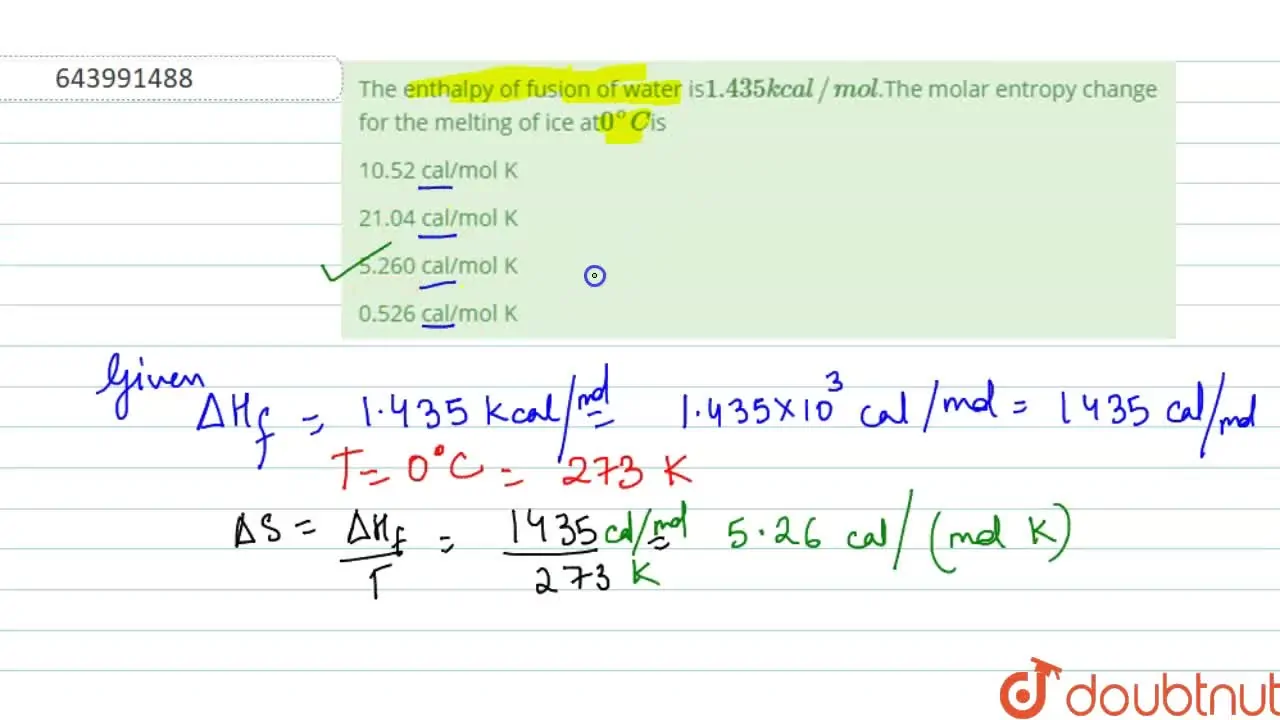 643991488
The enthalpy of fusion of water is1.435kcal/mol.The molar entropy change
for the melting of ice at0°Cis
10.52 cal/mol K
21.04 cal/mol K
5.260 cal/mol K
0.526 cal/mol K
Given
ΔHf = 1.435 Kcal/mol 1.435×10³ cal/mol = 1435 cal/mol
T = 0°C = 273 K
ΔS = ΔHf/T = 1435 cal/mol / 273 K = 5.26 cal/(mol K)
doubtnut